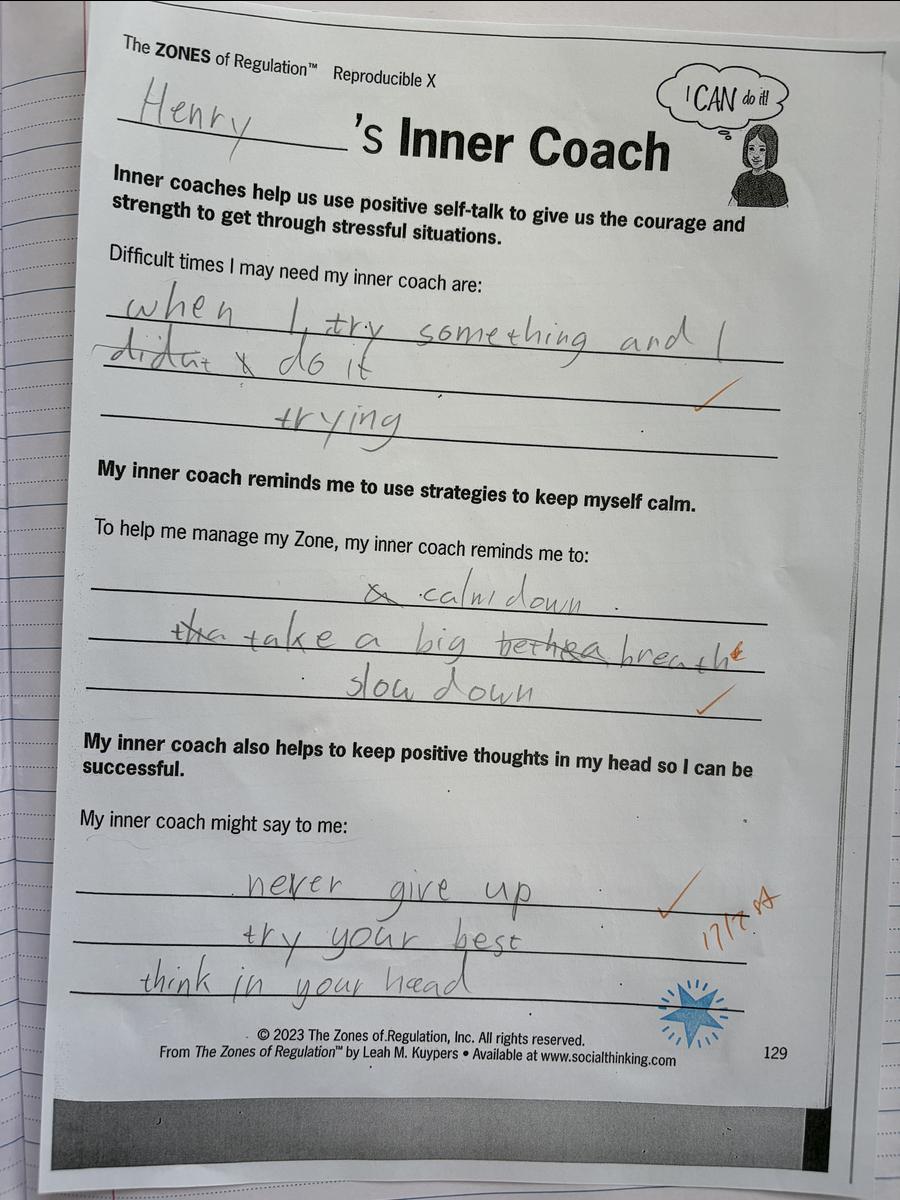 The ZONES of Regulation™ Reproducible X
I CAN do it!
Henry 's Inner Coach
Inner coaches help us use positive self-talk to give us the courage and
strength to get through stressful situations.
Difficult times I may need my inner coach are:
when I try something and I
didnt do it
trying
My inner coach reminds me to use strategies to keep myself calm.
To help me manage my Zone, my inner coach reminds me to:
calm down
take a big breathe
slow down
My inner coach also helps to keep positive thoughts in my head so I can be
successful.
My inner coach might say to me:
never give up
try your best
17/7
think in your head
© 2023 The Zones of Regulation, Inc. All rights reserved.
From The Zones of Regulation™ by Leah M. Kuypers • Available at www.socialthinking.com
129